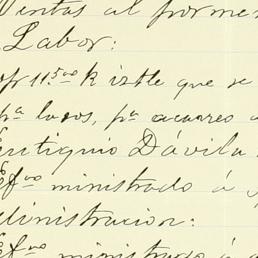 Ventas al pormen
Labor:
pr 11.500 k ixtle que se
pª lazos, pª acarreo
Eutiquio Dávila
ministrado á
ministracion:
ministrado á